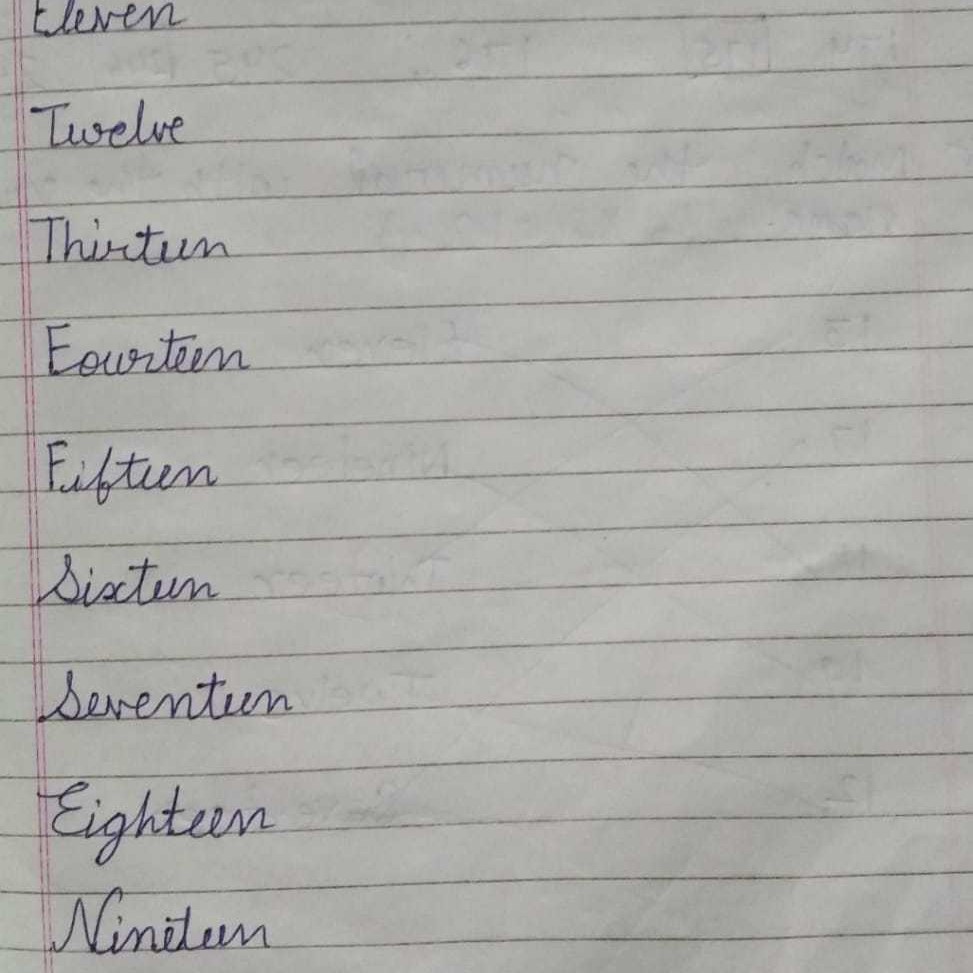 Eleven
Twelve
Thirteen
Fourteen
Fifteen
Sixteen
Seventeen
Eighteen
Nineteen